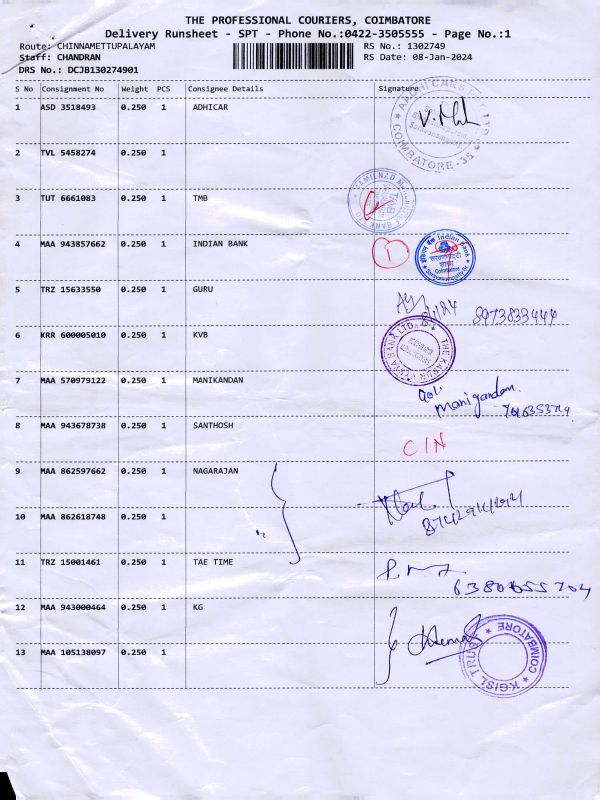 THE PROFESSIONAL COURIERS, COIMBATORE
Delivery Runsheet - SPT - Phone No.:0422-3505555 - Page No.:1
Route: CHINNAMETTUPALAYAM RS No.: 1302749
Staff: CHANDRAN RS Date: 08-Jan-2024
DRS No.: DCJB130274901
S No Consignment No Weight PCS Consignee Details Signature
1 ASD 3518493 0.250 1 ADHICAR
COIMBATORE-35
2 TVL 5458274 0.250 1
3 TUT 6661083 0.250 1 TMB
4 MAA 943857662 0.250 1 INDIAN BANK 1 Indian Bank
5 TRZ 15633550 0.250 1 GURU 8973833444
6 KRR 600005010 0.250 1 KVB
THE KARUR VYSYA BANK LTD.
7 MAA 570979122 0.250 1 MANIKANDAN
Manigandan
8 MAA 943678738 0.250 1 SANTHOSH CIN
9 MAA 862597662 0.250 1 NAGARAJAN
10 MAA 862618748 0.250 1
11 TRZ 15001461 0.250 1 TAE TIME
12 MAA 943000464 0.250 1 KG
13 MAA 105138097 0.250 1
KGISL TRUST COIMBATORE